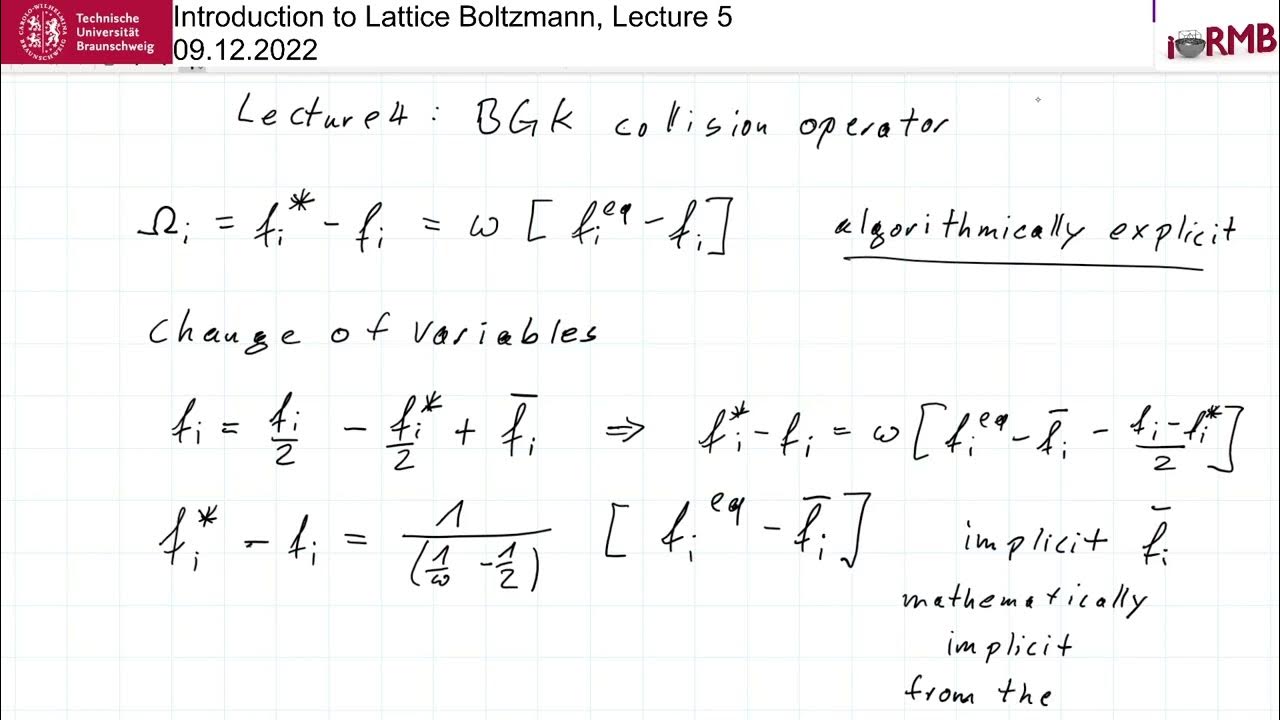 Technische
Universität
Braunschweig
Introduction to Lattice Boltzmann, Lecture 5
09.12.2022
iRMB
Lecture 4 : BGK collision operator
Ωᵢ = fᵢ* - fᵢ = ω [ fᵢ^eq - fᵢ ] algorithmically explicit
Change of variables
fᵢ = fᵢ/2 - fᵢ*/2 + f̄ᵢ ⇒ fᵢ* - fᵢ = ω [ fᵢ^eq - f̄ᵢ - (fᵢ - fᵢ*)/2 ]
fᵢ* - fᵢ = 1/(1/ω - 1/2) [ fᵢ^eq - f̄ᵢ ] implicit f̄ᵢ
mathematically
implicit
from the